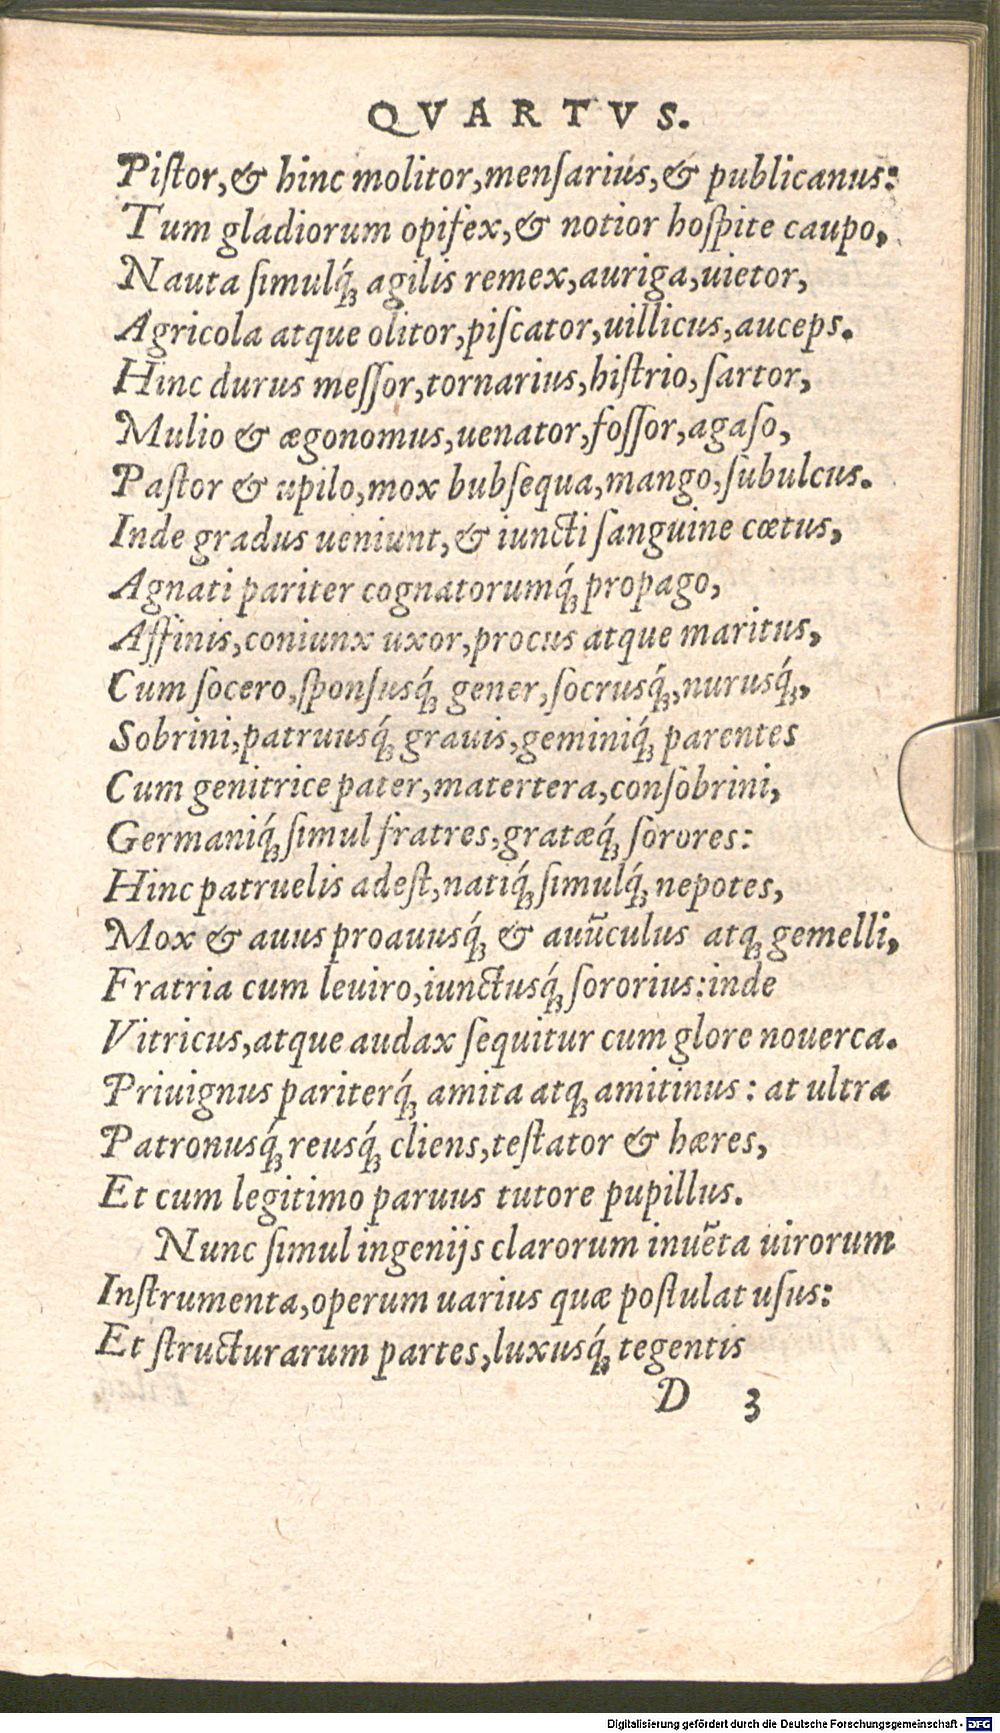 QVARTVS.
Piſtor, & hinc molitor, menſarius, & publicanus:
Tum gladiorum opifex, & notior hoſpite caupo,
Nauta ſimulq́; agilis remex, auriga, uietor,
Agricola atque olitor, piſcator, uillicus, auceps.
Hinc durus meſſor, tornarius, hiſtrio, ſartor,
Mulio & ægonomus, uenator, foſſor, agaſo,
Paſtor & upilo, mox bubſequa, mango, ſubulcus.
Inde gradus ueniunt, & iuncti ſanguine cœtus,
Agnati pariter cognatorumq́; propago,
Affinis, coniunx uxor, procus atque maritus,
Cum ſocero, ſponſusq́; gener, ſocrusq́;, nurusq́;,
Sobrini, patruusq́; grauis, geminiq́; parentes
Cum genitrice pater, matertera, conſobrini,
Germaniq́; ſimul fratres, gratæq́; ſorores:
Hinc patruelis adeſt, natiq́; ſimulq́; nepotes,
Mox & auus proauusq́; & auūculus atq; gemelli,
Fratria cum leuiro, iunctusq́; ſororius: inde
Vitricus, atque audax ſequitur cum glore nouerca.
Priuignus pariterq́; amita atq; amitinus: at ultra
Patronusq́; reusq́; cliens, teſtator & hæres,
Et cum legitimo paruus tutore pupillus.
Nunc ſimul ingenijs clarorum inuēta uirorum
Inſtrumenta, operum uarius quæ poſtulat uſus:
Et ſtructurarum partes, luxusq́; tegentis
D 3
Digitalisierung gefördert durch die Deutsche Forschungsgemeinschaft - DFG